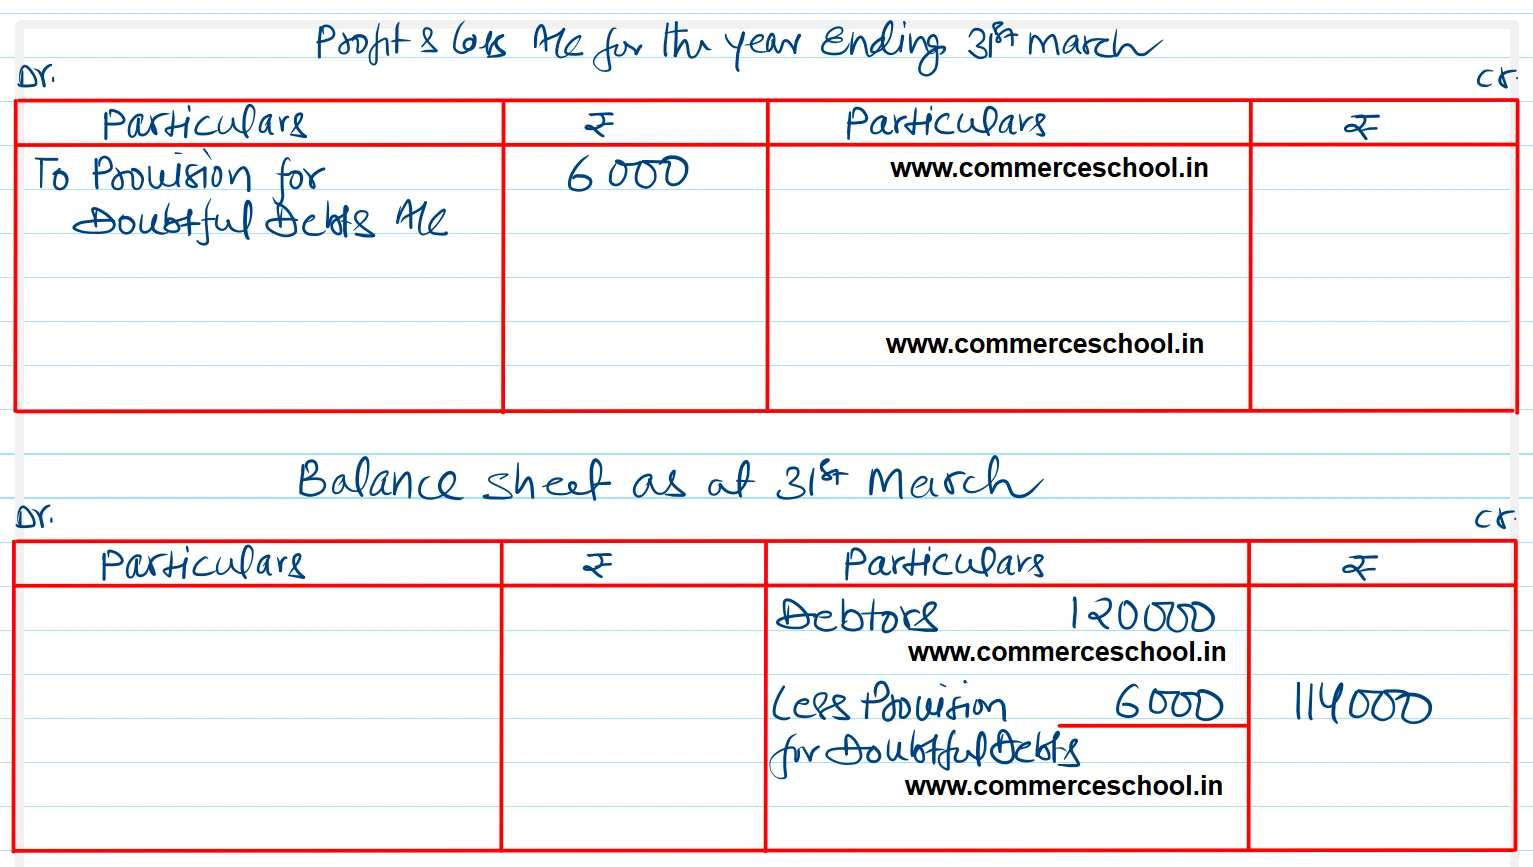 Profit & Loss A/c for the year Ending 31st march
Dr. Cr.
Particulars ₹ Particulars ₹
To Provision for 6000 www.commerceschool.in
Doubtful Debts A/c
www.commerceschool.in
Balance sheet as at 31st March
Dr. Cr.
Particulars ₹ Particulars ₹
Debtors 120000
www.commerceschool.in
Less Provision 6000 114000
for Doubtful Debts
www.commerceschool.in